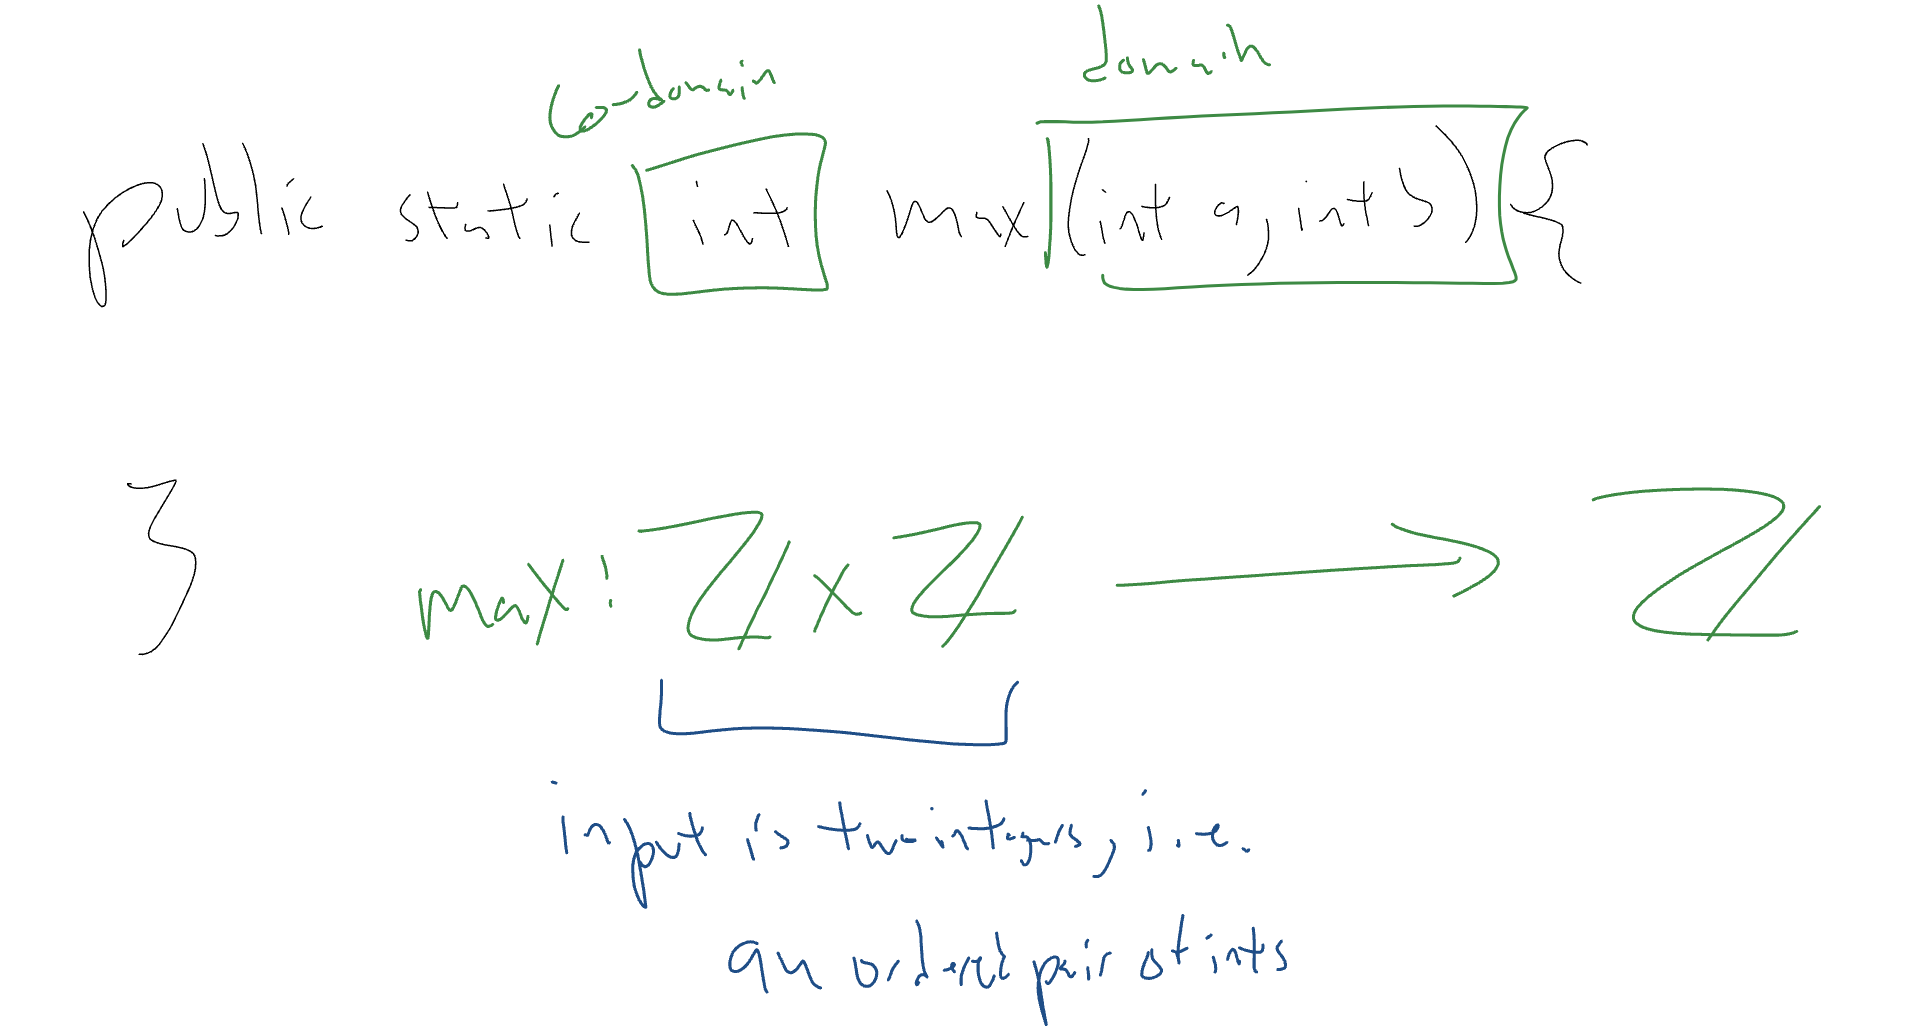 co-domain domain
public static int max (int a, int b) {
} max: ℤ x ℤ → ℤ
input is two integers, i.e.
an ordered pair of ints